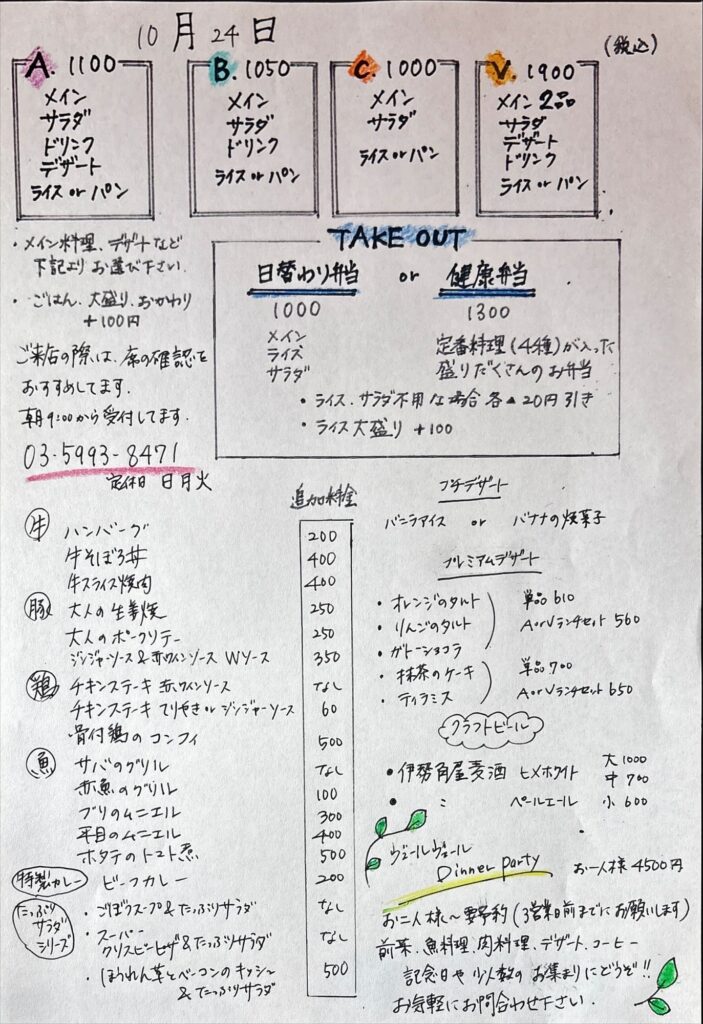 10月24日
(税込)
A. 1100
メイン
サラダ
ドリンク
デザート
ライス or パン
B. 1050
メイン
サラダ
ドリンク
ライス or パン
C. 1000
メイン
サラダ
ライス or パン
V. 1900
メイン 2品
サラダ
デザート
ドリンク
ライス or パン
・メイン料理、デザートなど
下記より お選び下さい.
・ごはん、大盛り、おかわり
+100円
ご来店の際は、席の確認を
おすすめしてます.
朝9:00から受付してます.
03-5993-8471
定休日 日月火
TAKE OUT
日替わり弁当 or 健康弁当
1000
メイン
ライス
サラダ
1300
定番料理(4種)が入った
盛りだくさんのお弁当
・ライス、サラダ不用な場合 各▲20円引き
・ライス大盛り +100
追加料金
牛 ハンバーグ 200
牛そぼろ丼 400
牛スライス焼肉 400
豚 大人の生姜焼 250
大人のポークソテー 250
ジンジャーソース&赤ワインソース Wソース 350
鶏 チキンステーキ 赤ワインソース なし
チキンステーキ てりやき or ジンジャーソース 60
骨付鶏のコンフィ 500
魚 サバのグリル なし
赤魚のグリル 100
ブリのムニエル 300
平目のムニエル 400
ホタテのトマト煮 500
特製カレー ビーフカレー 200
たっぷりサラダシリーズ
・ごぼうスープ&たっぷりサラダ なし
・スーパー
クリスピーピザ&たっぷりサラダ なし
・ほうれん草とベーコンのキッシュ 500
&たっぷりサラダ
プチデザート
バニラアイス or バナナの焼菓子
プレミアムデザート
・オレンジのタルト
・りんごのタルト
・ガトーショコラ
単品 610
A or Vランチセット 560
・抹茶のケーキ
・ティラミス
単品 700
A or Vランチセット 650
クラフトビール
・伊勢角屋麦酒 ヒメホワイト
・ 〃 ペールエール
大 1000
中 700
小 600
ヴェールヴェール
Dinner party お一人様 4500円
お二人様～要予約(3営業日前までにお願いします)
前菜、魚料理、肉料理、デザート、コーヒー
記念日や少人数のお集まりにどうぞ!!
お気軽にお問合わせ下さい.